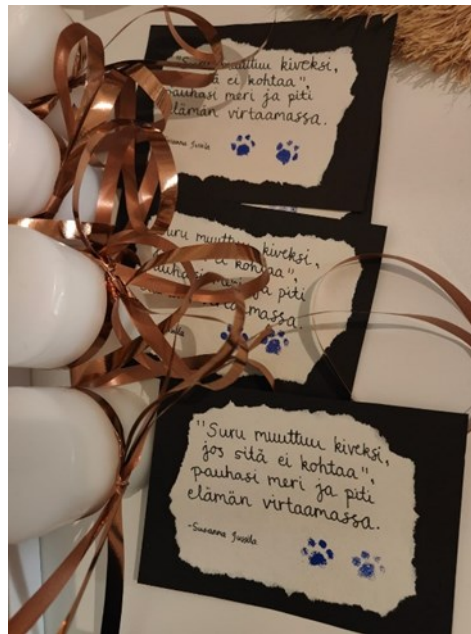 "Suru muuttuu kiveksi,
ei kohtaa",
pauhasi meri ja piti
elämän virtaamassa.
Jussila
Suru muuttuu kiveksi,
ei kohtaa",
pauhasi meri ja piti
virtaamassa.
"Suru muuttuu kiveksi,
jos sitä ei kohtaa",
pauhasi meri ja piti
elämän virtaamassa.
-Susanna Jussila